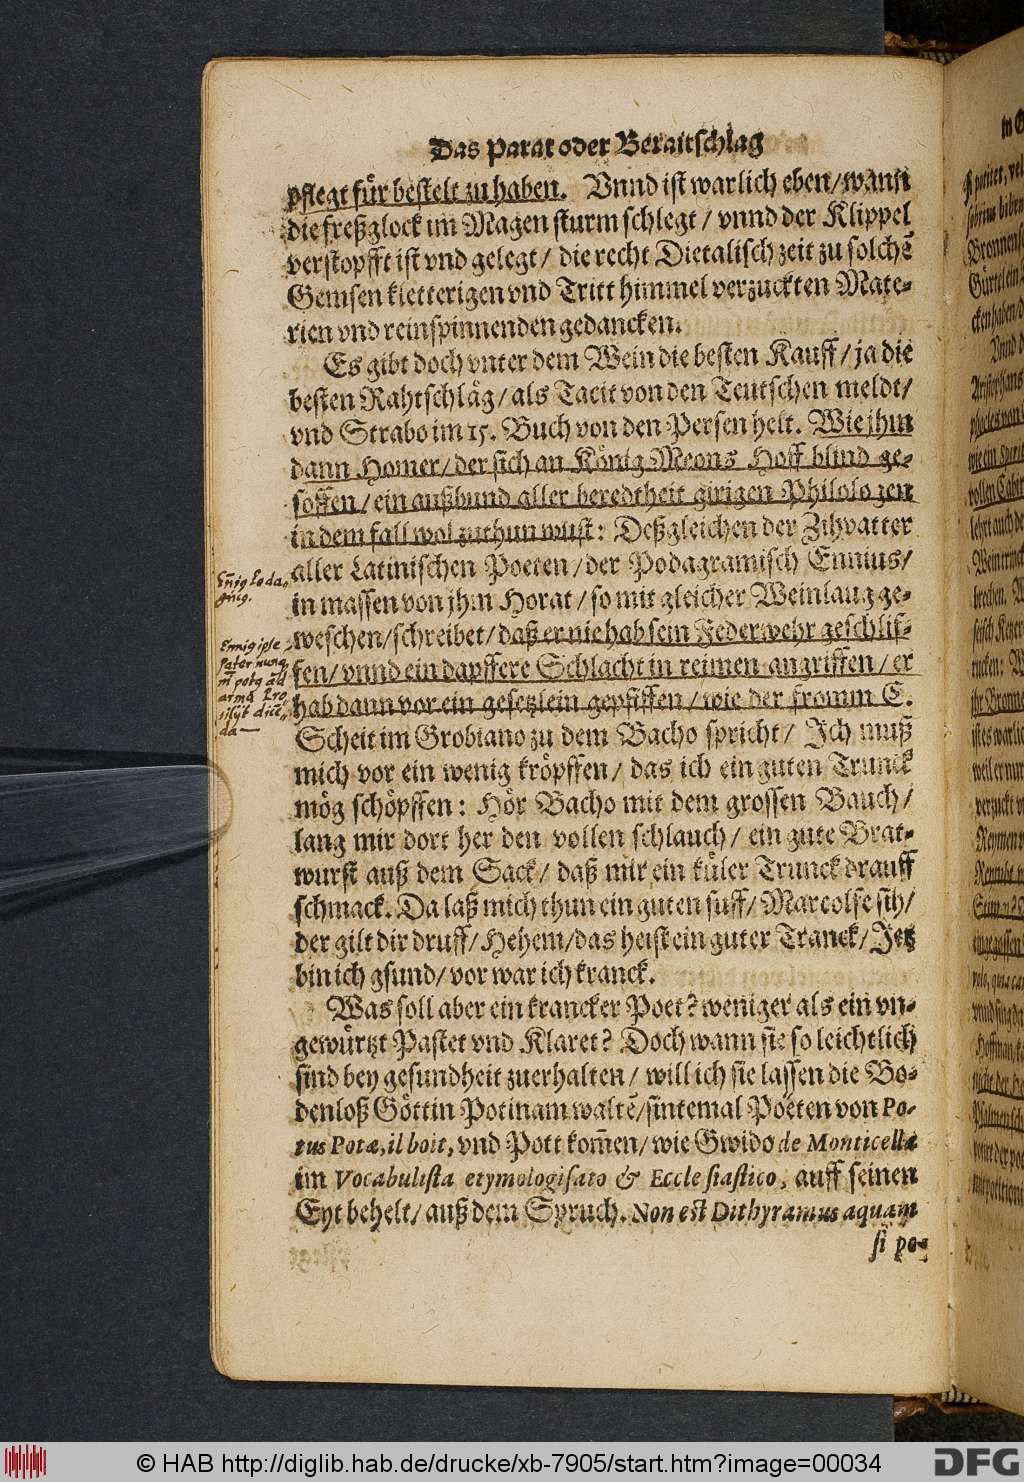 Das Parat oder Beraitschlag
pflegt für bestelt zu haben. Vnnd ist warlich eben/wann
die freßglock im Magen sturm schlegt / vnnd der Klippel
verstopfft ist vnd gelegt / die recht Dietalisch zeit zu solchẽ
Gemsen kletterigen vnd Tritt himmel verzuckten Mate-
rien vnd reinspinnenden gedancken.
Es gibt doch vnter dem Wein die besten Kauff / ja die
besten Rahtschläg / als Tacit von den Teutschen meldt/
vnd Strabo im 15. Buch von den Persen helt. Wie jhm
dann Homer / der sich an König Meons Hoff blind ge-
soffen / ein außbund aller beredtheit girigen Philologen
in dem fall wol zuthun wust: Deßgleichen der Zihvatter
aller Latinischen Poeten / der Podagramisch Ennius/
in massen von jhm Horat / so mit gleicher Weinlaug ge-
weschen/schreibet/ daß er nie hab sein Federwehr geschlif-
fen / vnnd ein dapffere Schlacht in reimen angriffen / er
hab dann vor ein gesetzlein gepfiffen / wie der fromm C.
Scheit im Grobiano zu dem Bacho spricht / Ich muß
mich vor ein wenig kröpffen / das ich ein guten Trunck
mög schöpffen: Hör Bacho mit dem grossen Bauch /
lang mir dort her den vollen schlauch / ein gute Brat-
wurst auß dem Sack / daß mir ein küler Trunck drauff
schmack. Da laß mich thun ein guten suff/ Marcolfe sih/
der gilt dir druff/Hehem/das heist ein guter Tranck/ Jetz
bin ich gsund/ vor war ich kranck.
Was soll aber ein krancker Poet? weniger als ein vn-
gewürtzt Pastet vnd Klaret? Doch wann sie so leichtlich
sind bey gesundheit zuerhalten / will ich sie lassen die Bo-
denloß Göttin Potinam waltẽ/sintemal Poeten von Po-
tus Potæ, il boit, vnd Pott kom̃en/ wie Gwido de Monticella
im Vocabulista etymologisato & Ecclesiastico, auff seinen
Eyt behelt/ auß dem Spruch. Non est Dithyramus aquam
si po-
Ennig ipse
pater nunq
© HAB http://diglib.hab.de/drucke/xb-7905/start.htm?image=00034
DFG